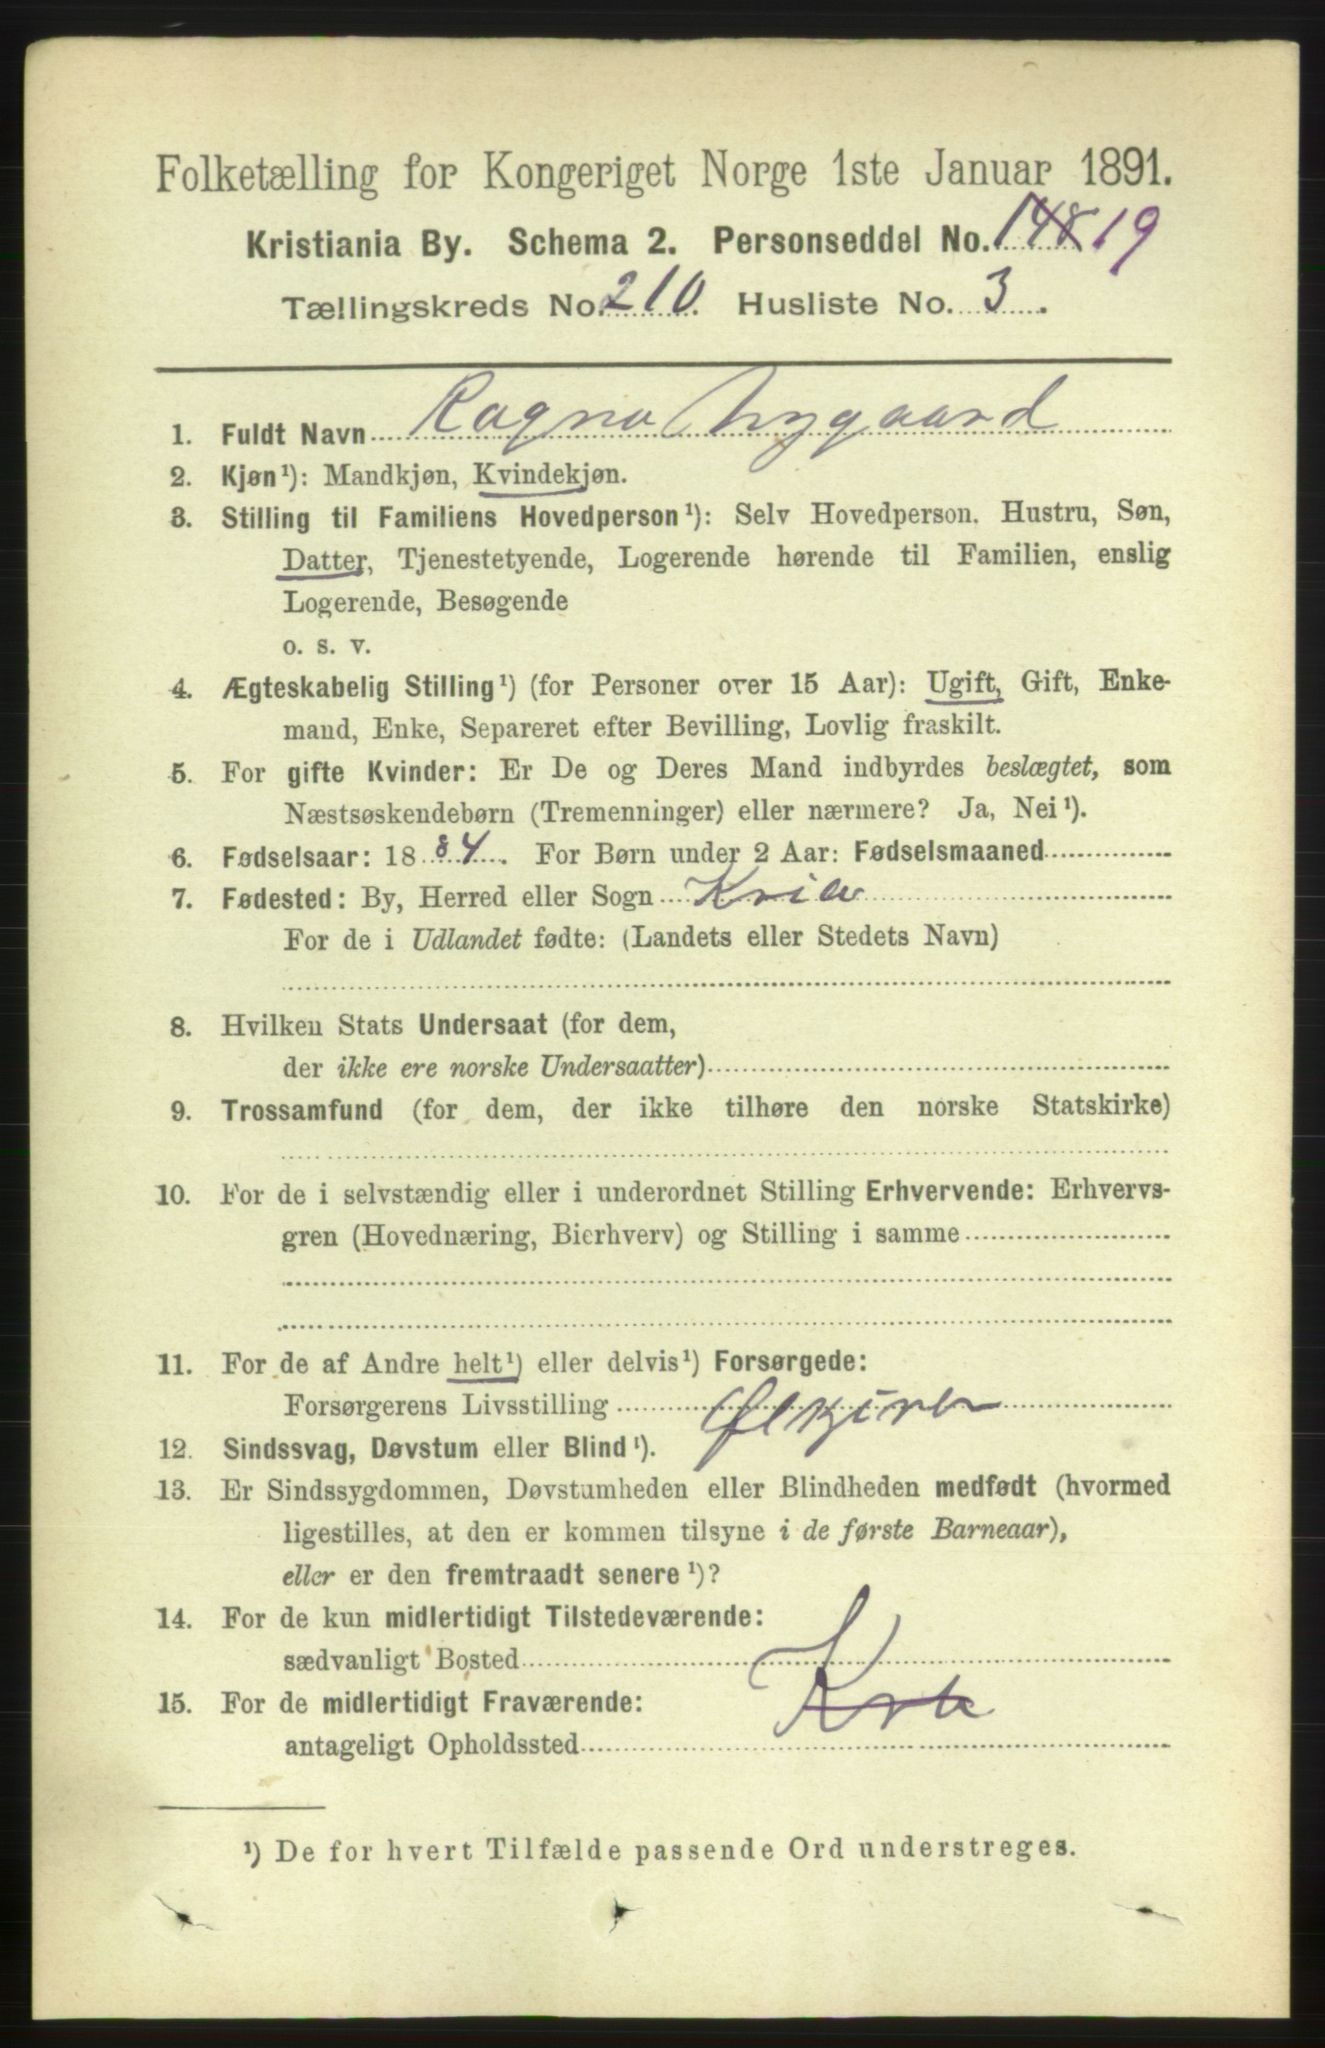 Folketælling for Kongeriget Norge 1ste Januar 1891.
Kristiania By. Schema 2. Personseddel No. 148 19
Tællingskreds No. 210. Husliste No. 3.
1. Fuldt Navn Ragna Nygaard
2. Kjøn¹): Mandkjøn, Kvindekjøn.
3. Stilling til Familiens Hovedperson¹): Selv Hovedperson. Hustru, Søn,
Datter, Tjenestetyende, Logerende hørende til Familien, enslig
Logerende, Besøgende
o. s. v.
4. Ægteskabelig Stilling¹) (for Personer over 15 Aar): Ugift, Gift, Enke-
mand, Enke, Separeret efter Bevilling, Lovlig fraskilt.
5. For gifte Kvinder: Er De og Deres Mand indbyrdes beslægtet, som
Næstsøskendebørn (Tremenninger) eller nærmere? Ja, Nei¹).
6. Fødselsaar: 1884. For Børn under 2 Aar: Fødselsmaaned
7. Fødested: By, Herred eller Sogn Kria
For de i Udlandet fødte: (Landets eller Stedets Navn)
8. Hvilken Stats Undersaat (for dem,
der ikke ere norske Undersaatter)
9. Trossamfund (for dem, der ikke tilhøre den norske Statskirke)
10. For de i selvstændig eller i underordnet Stilling Erhvervende: Erhvervs-
gren (Hovednæring, Bierhverv) og Stilling i samme
11. For de af Andre helt¹) eller delvis¹) Forsørgede:
Forsørgerens Livsstilling Ølkjører
12. Sindssvag, Døvstum eller Blind¹).
13. Er Sindssygdommen, Døvstumheden eller Blindheden medfødt (hvormed
ligestilles, at den er kommen tilsyne i de første Barneaar),
eller er den fremtraadt senere¹)?
14. For de kun midlertidigt Tilstedeværende:
sædvanligt Bosted
15. For de midlertidigt Fraværende:
antageligt Opholdssted
¹) De for hvert Tilfælde passende Ord understreges.